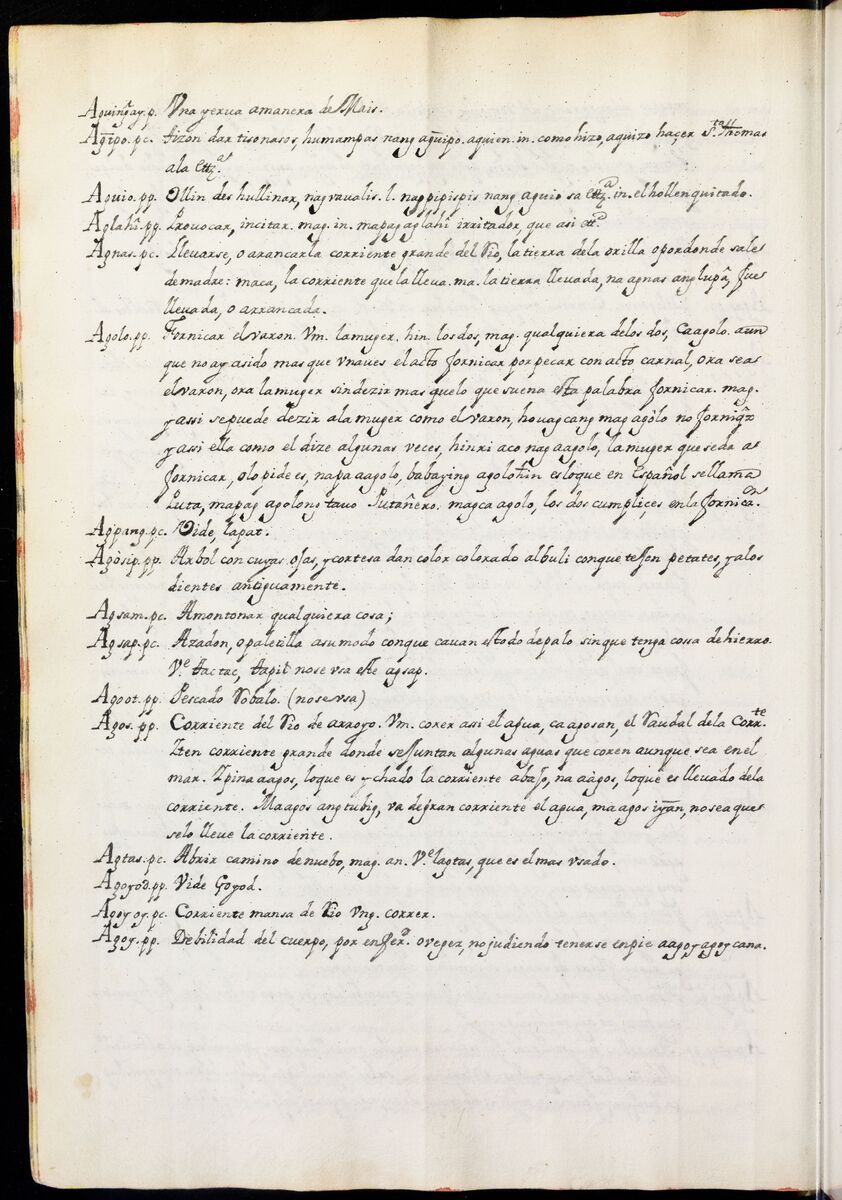 Aguing̃ay.p. Vna yerua amanera de Mais.
Ag̃ipo.pc. tizon dar tisonasos, humampas nang ag̃uipo. aquien. in. como hizo, aquizo haçer S.to Thomas
ala
Aguio.pp. Ollin des hullinar, nagvaualis. l. nagpipispis nang aguio sa in. el hollen quitado.
Aglahî.pp. Prouocar, incitar. mag. in. mapagaglahî irritador, que asi
Agnas.pc. Lleuarse, o arancarla corriente grande del Rio, la tierra dela orilla opordonde sale
demadre: maca, la corriente que la lleua. ma. la tierra lleuada, na agnas ang lupâ, fue
lleuada, o arrancada.
Agolo.pp. Fornicar el varon. Vm. lamuger. hin. los dos, mag. qualquiera delos dos, Caagolo. aun
que no ay asido mas que vnaues el acto fornicar por pecar con acto carnal, ora sea
el varon, ora lamuger sindezir mas quelo que suena esta palabra fornicar. mag.
y assi sepuede dezir ala muger como el varon, houag cang mag agolo no forniq̃z
y assi ella como el dize algunas veces, hinri aco nag aagolo, la muger que seda a
fornicar, olo pide es, napa aagolo, babaying agolohin es loque en Español sellama
Puta, mapag agolong tauo Putañero. magca agolo, los dos cumpliçes enla fornicar.on
Agpang.pc. Vide, lapat.
Agòsip.pp. Arbol con cuyas ojas, y cortesa dan color colorado albuli conque tejen petates, y alos
dientes antiguamente.
Agsam.pc. Amontonar qualquiera cosa;
Agsap.pc. Azadon, o paletilla asumodo conque cauan estodo depalo sinque tenga cossa de hierro.
V.e tactac, tapil nose vsa este agsap.
Agoot.pp. Pescado Robalo. (nosevsa)
Agos.pp. Corriente del Rio de arroyo. Vm. corer asi el agua, caagosan, el Raudal dela Corr.te
Iten corriente grande donde sejuntan algunas aguas que coren aunque sea enel
mar. Ipina aagos, loque es ychado la corriente abajo, na aagos, loque es lleuado dela
corriente. Maagos ang tubig, va degran corriente el agua, ma agos iyan, nosea que
selo lleue la corriente.
Agtas.pc. Abrir camino denuebo, mag. an. V.e lagtas, que es el mas vsado.
Agoyod.pp. Vide Goyod.
Agoy oy.pc. Corriente mansa de Rio Vng. correr.
Agoy.pp. Debilidad del cuerpo, por enfer.a o vegez, no judiendo tenerse enpie aagoyagoy cana.